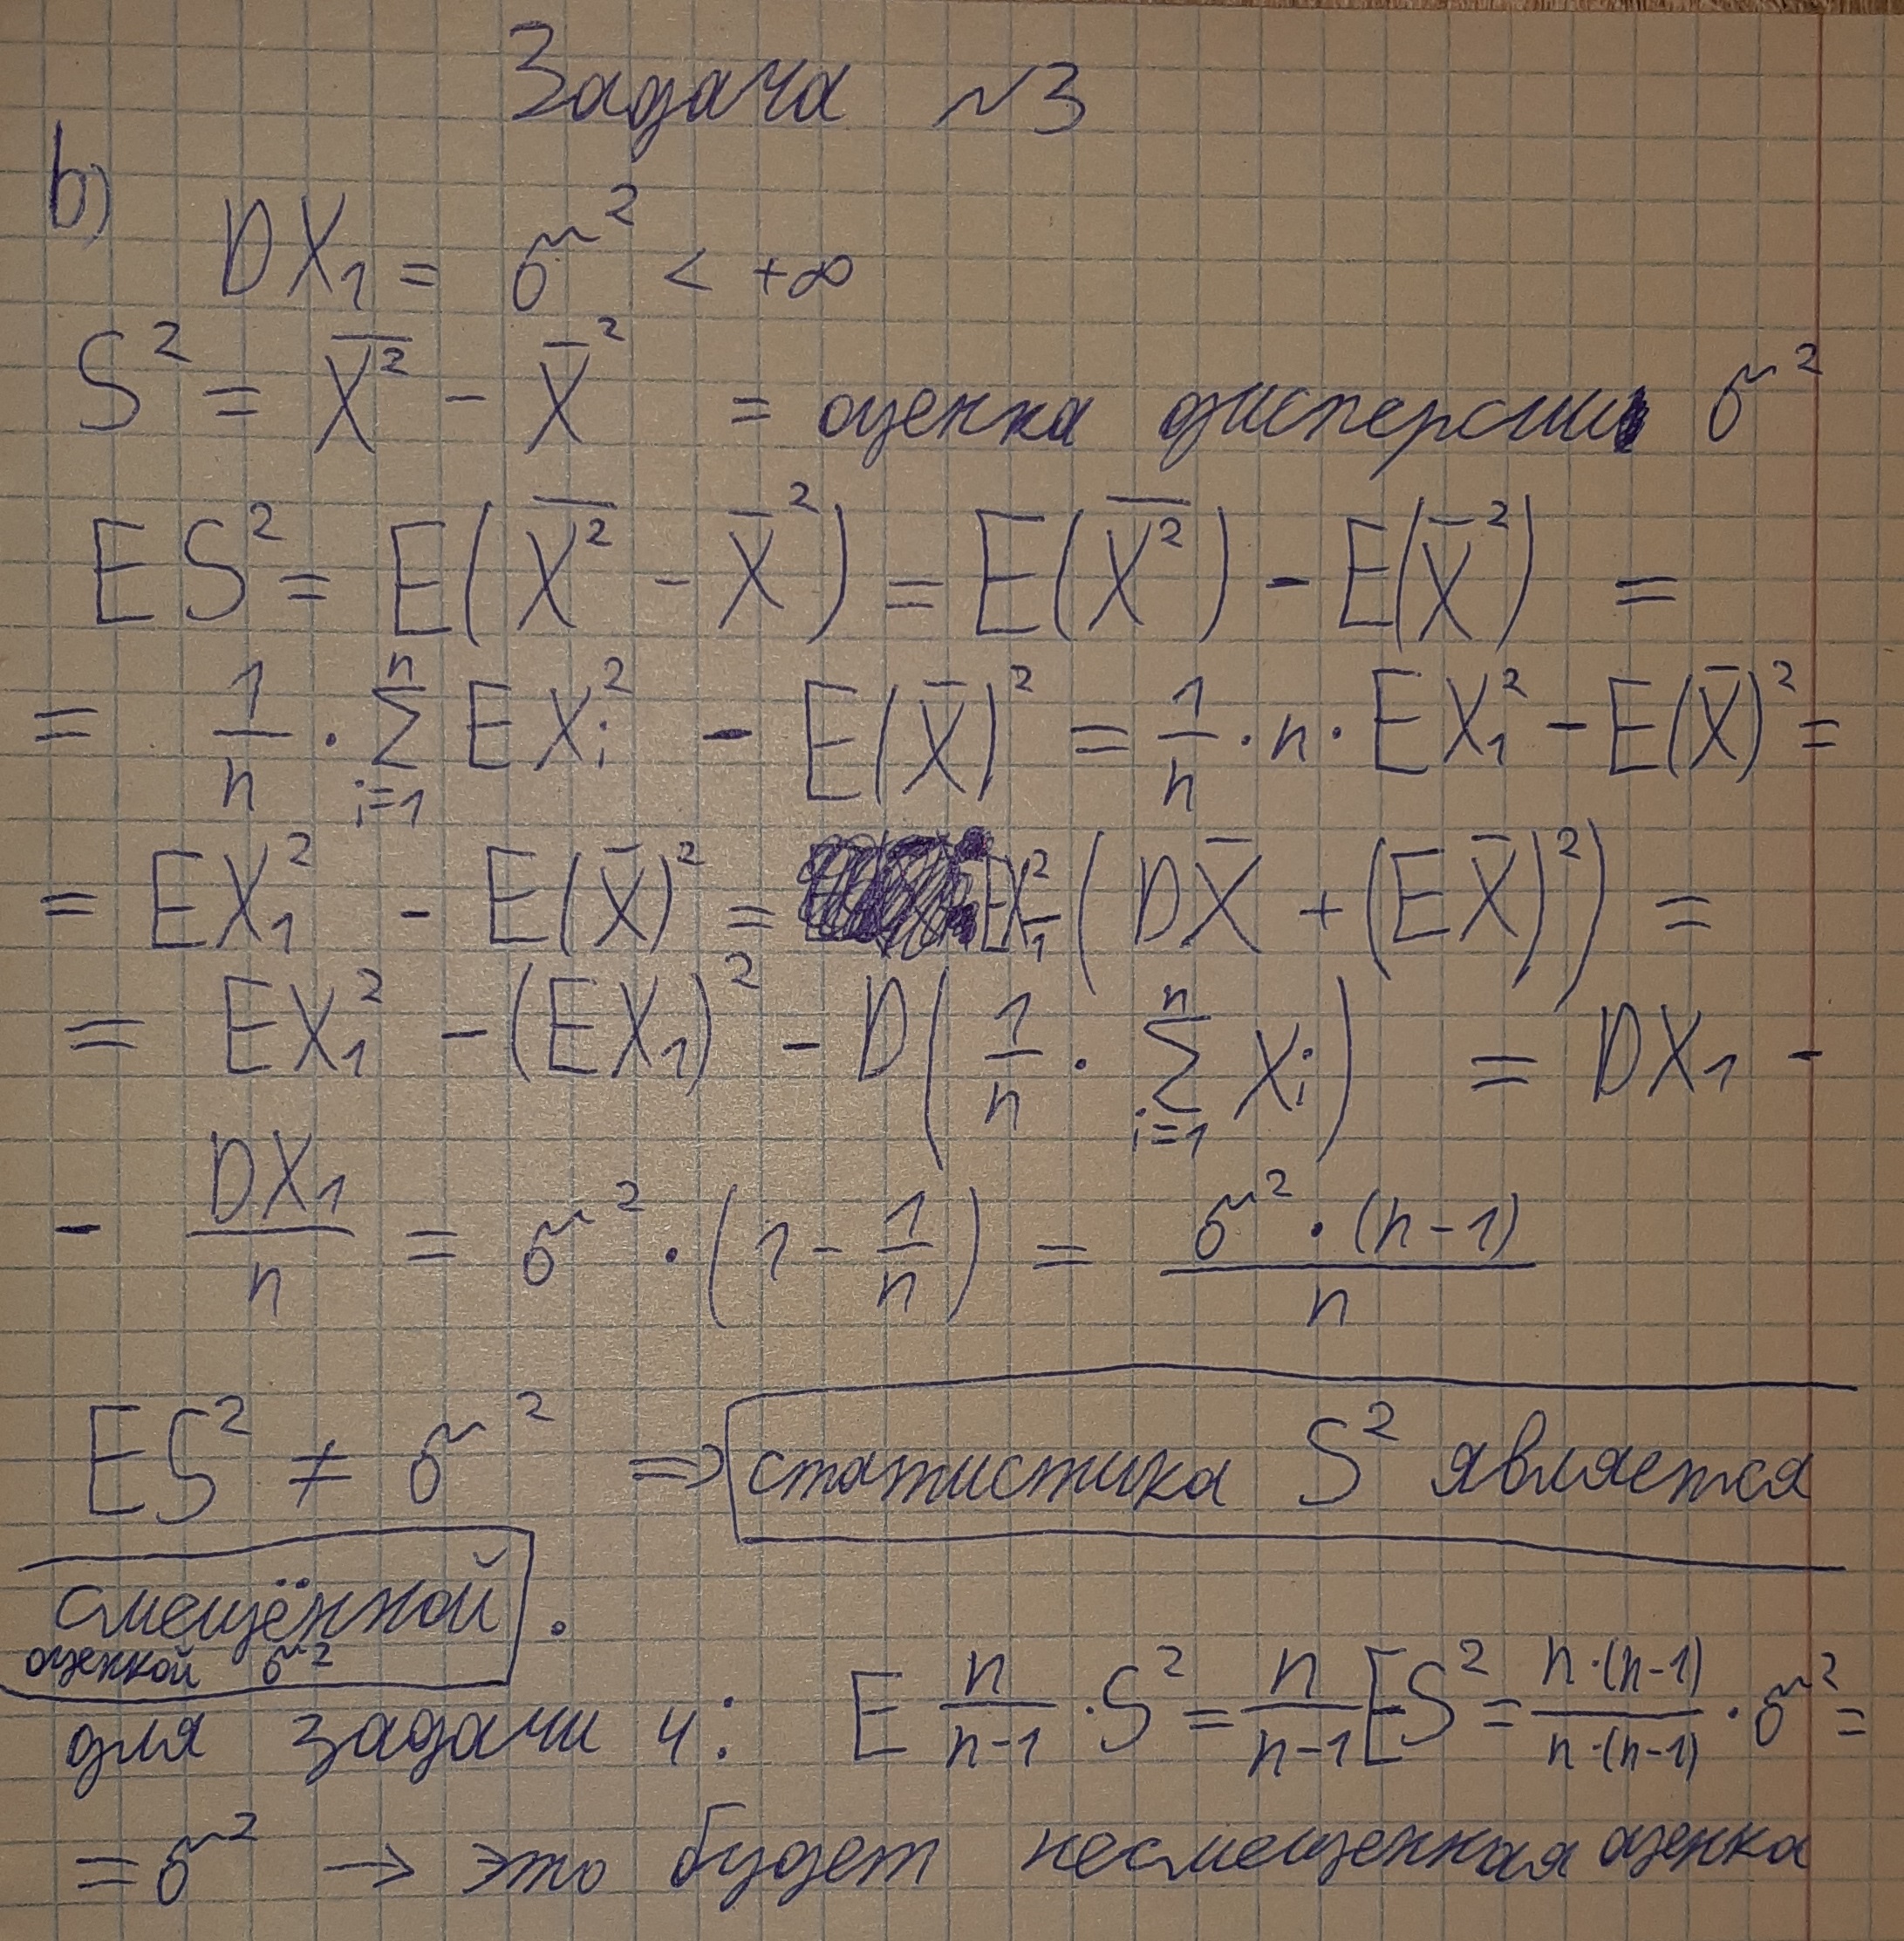 Задача №3
b)
DX₁ = σ² < +∞
S² = \overline{X²} - \overline{X}² = оценка дисперсии σ²
ES² = E(\overline{X²} - \overline{X}²) = E(\overline{X²}) - E(\overline{X}²) =
= \frac{1}{n} · \sum_{i=1}^{n} EX_i² - E(\overline{X})² = \frac{1}{n} · n · EX₁² - E(\overline{X})² =
= EX₁² - E(\overline{X})² = EX₁² - (D\overline{X} + (E\overline{X})²) =
= EX₁² - (EX₁)² - D(\frac{1}{n} · \sum_{i=1}^{n} X_i) = DX₁ -
- \frac{DX₁}{n} = σ² · (1 - \frac{1}{n}) = \frac{σ² · (n-1)}{n}
ES² ≠ σ² ⇒ статистика S² является
смещённой .
оценкой σ²
для задачи 4: E \frac{n}{n-1} · S² = \frac{n}{n-1} ES² = \frac{n·(n-1)}{n·(n-1)} · σ² =
= σ² → это будет несмещенная оценка